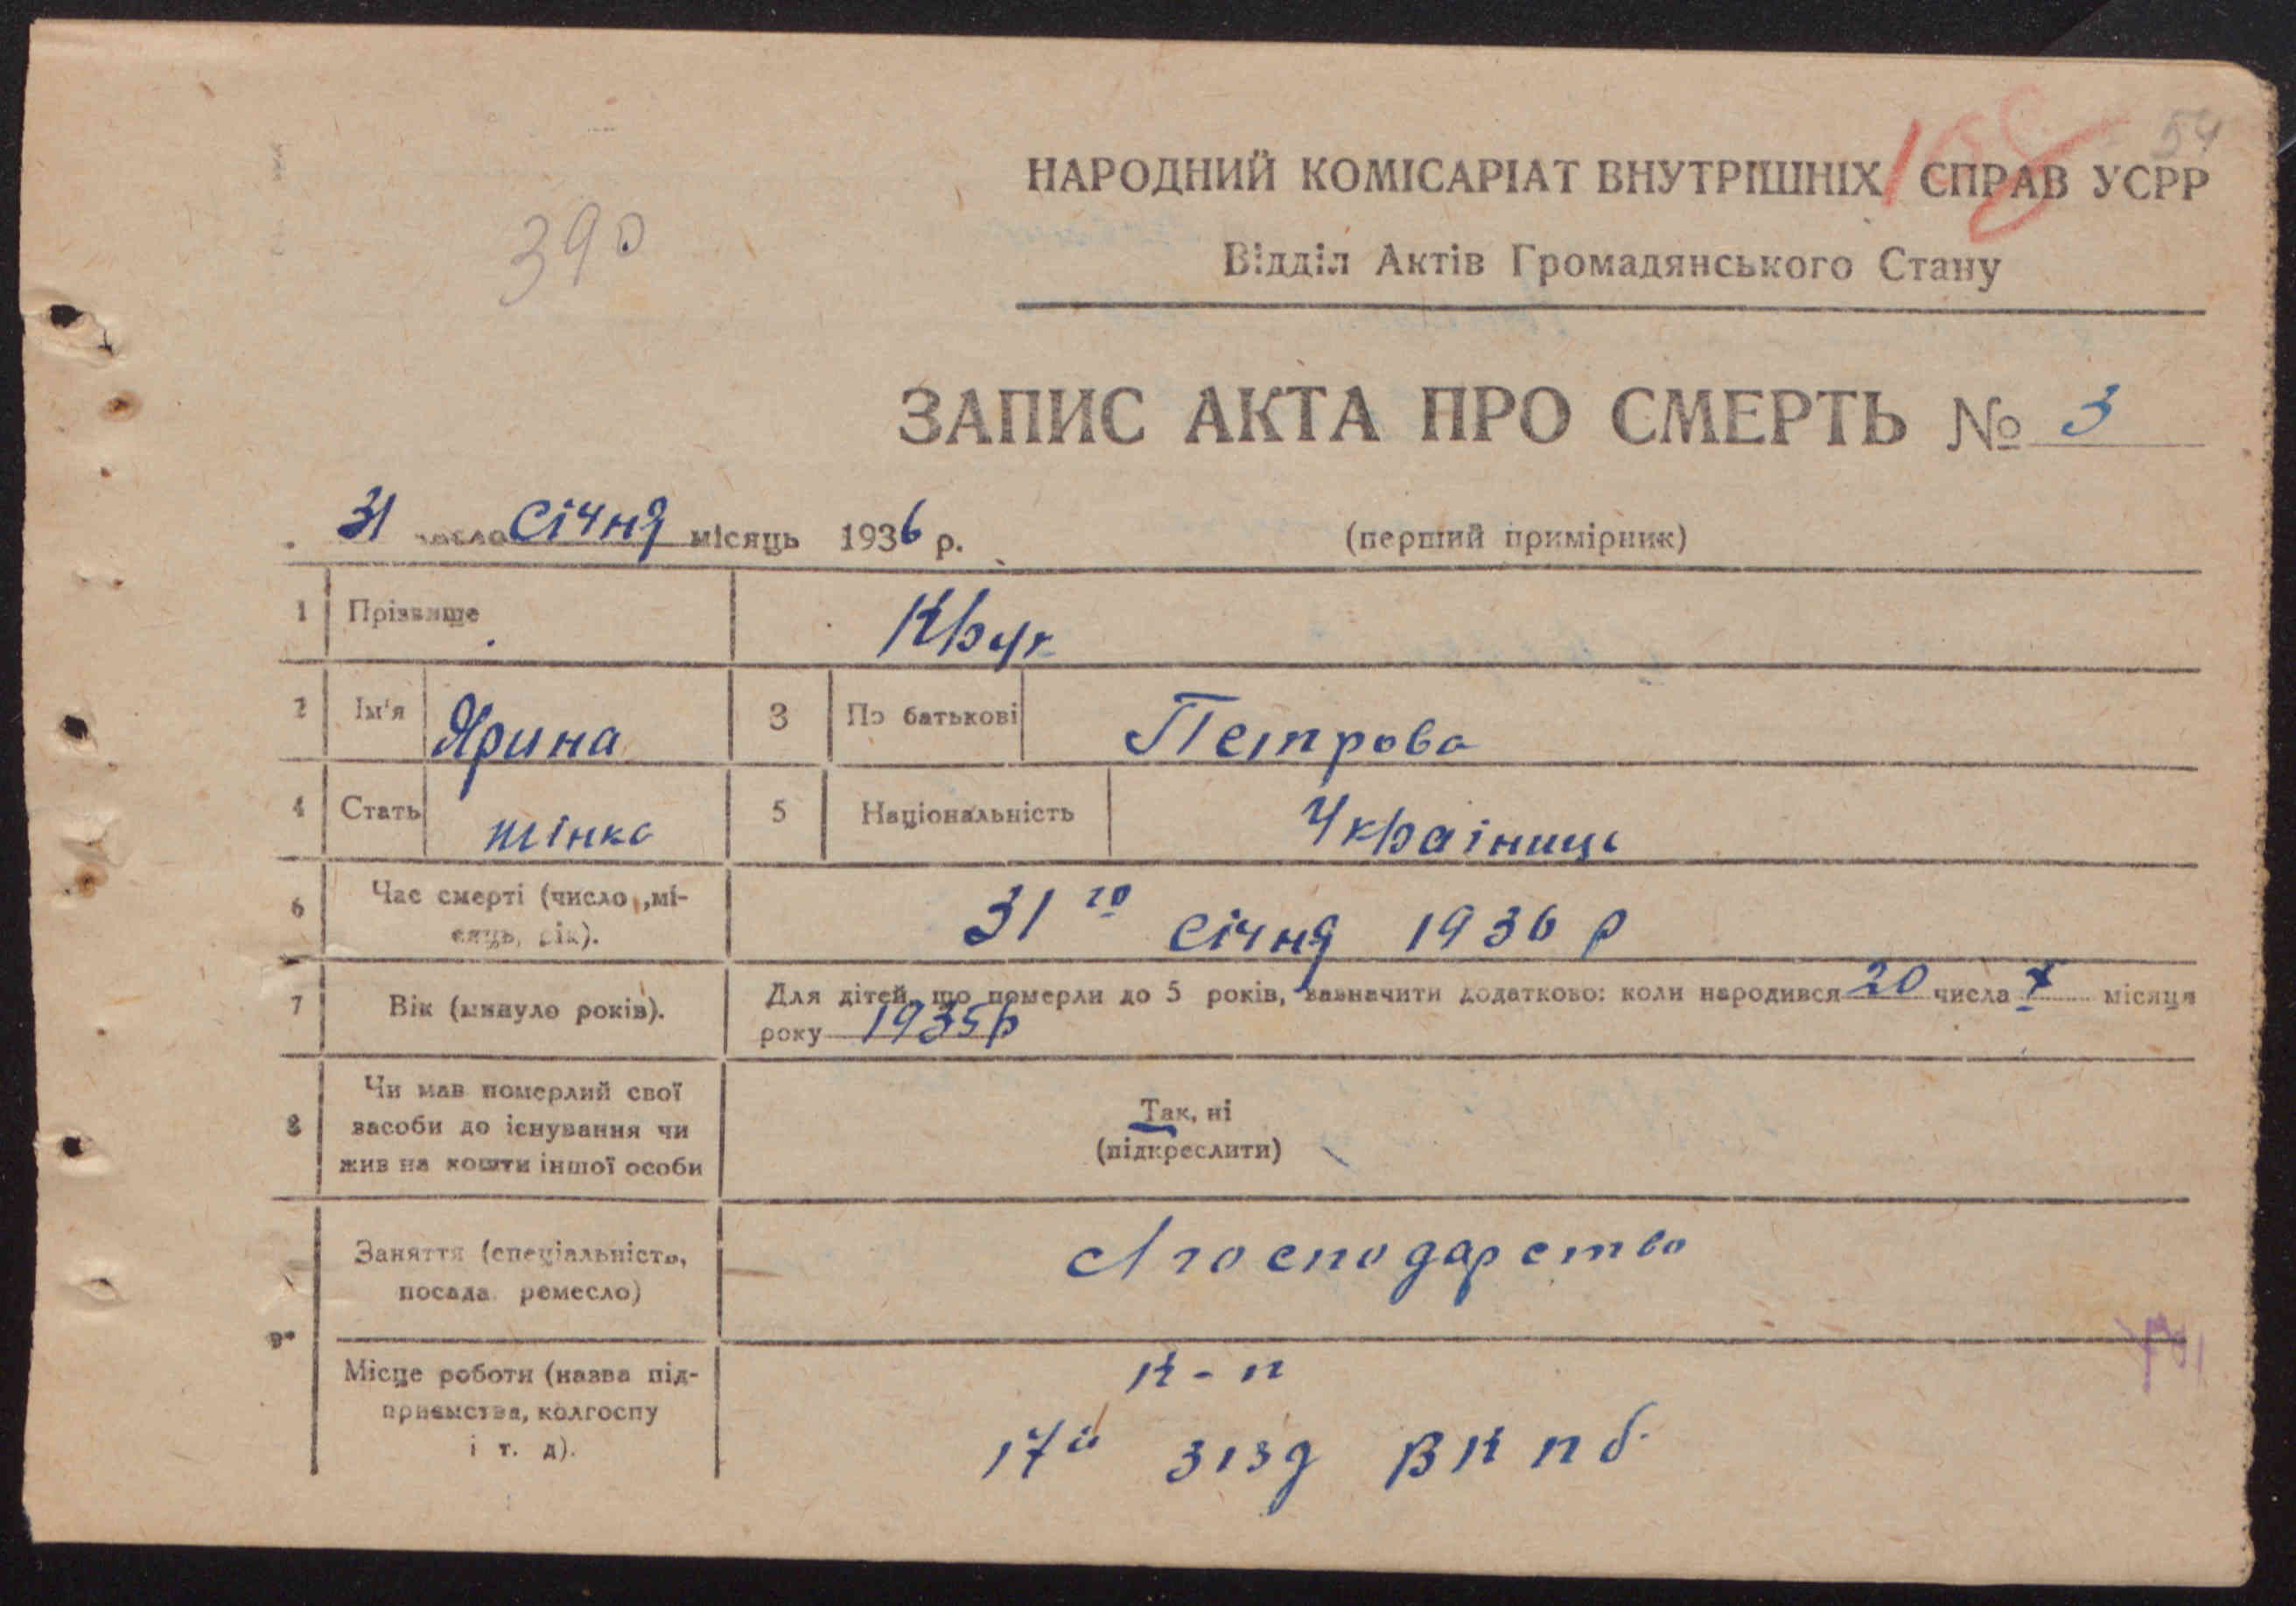 54
НАРОДНИЙ КОМІСАРІАТ ВНУТРІШНІХ СПРАВ УСРР
390
Відділ Актів Громадянського Стану
ЗАПИС АКТА ПРО СМЕРТЬ № 3
31 число Січня місяць 1936 р.
(перший примірник)
1 Прізвище Крук
2 Ім'я Ярина 3 По батькові Петрова
4 Стать жінка 5 Національність Українець
6 Час смерті (число ,мі-
сяць, рік).
31 го Січня 1936 р
7 Вік (минуло років). Для дітей, що померли до 5 років, зазначити додатково: коли народився 20 числа X місяця
року 1935р
8 Чи мав померлий свої
засоби до існування чи
жив на кошти іншої особи
Так, ні
(підкреслити)
9. Заняття (спеціальність,
посада ремесло)
господарство
Місце роботи (назва під-
приємства, колгоспу
і т. д).
К-п
17й зізд ВКПб.